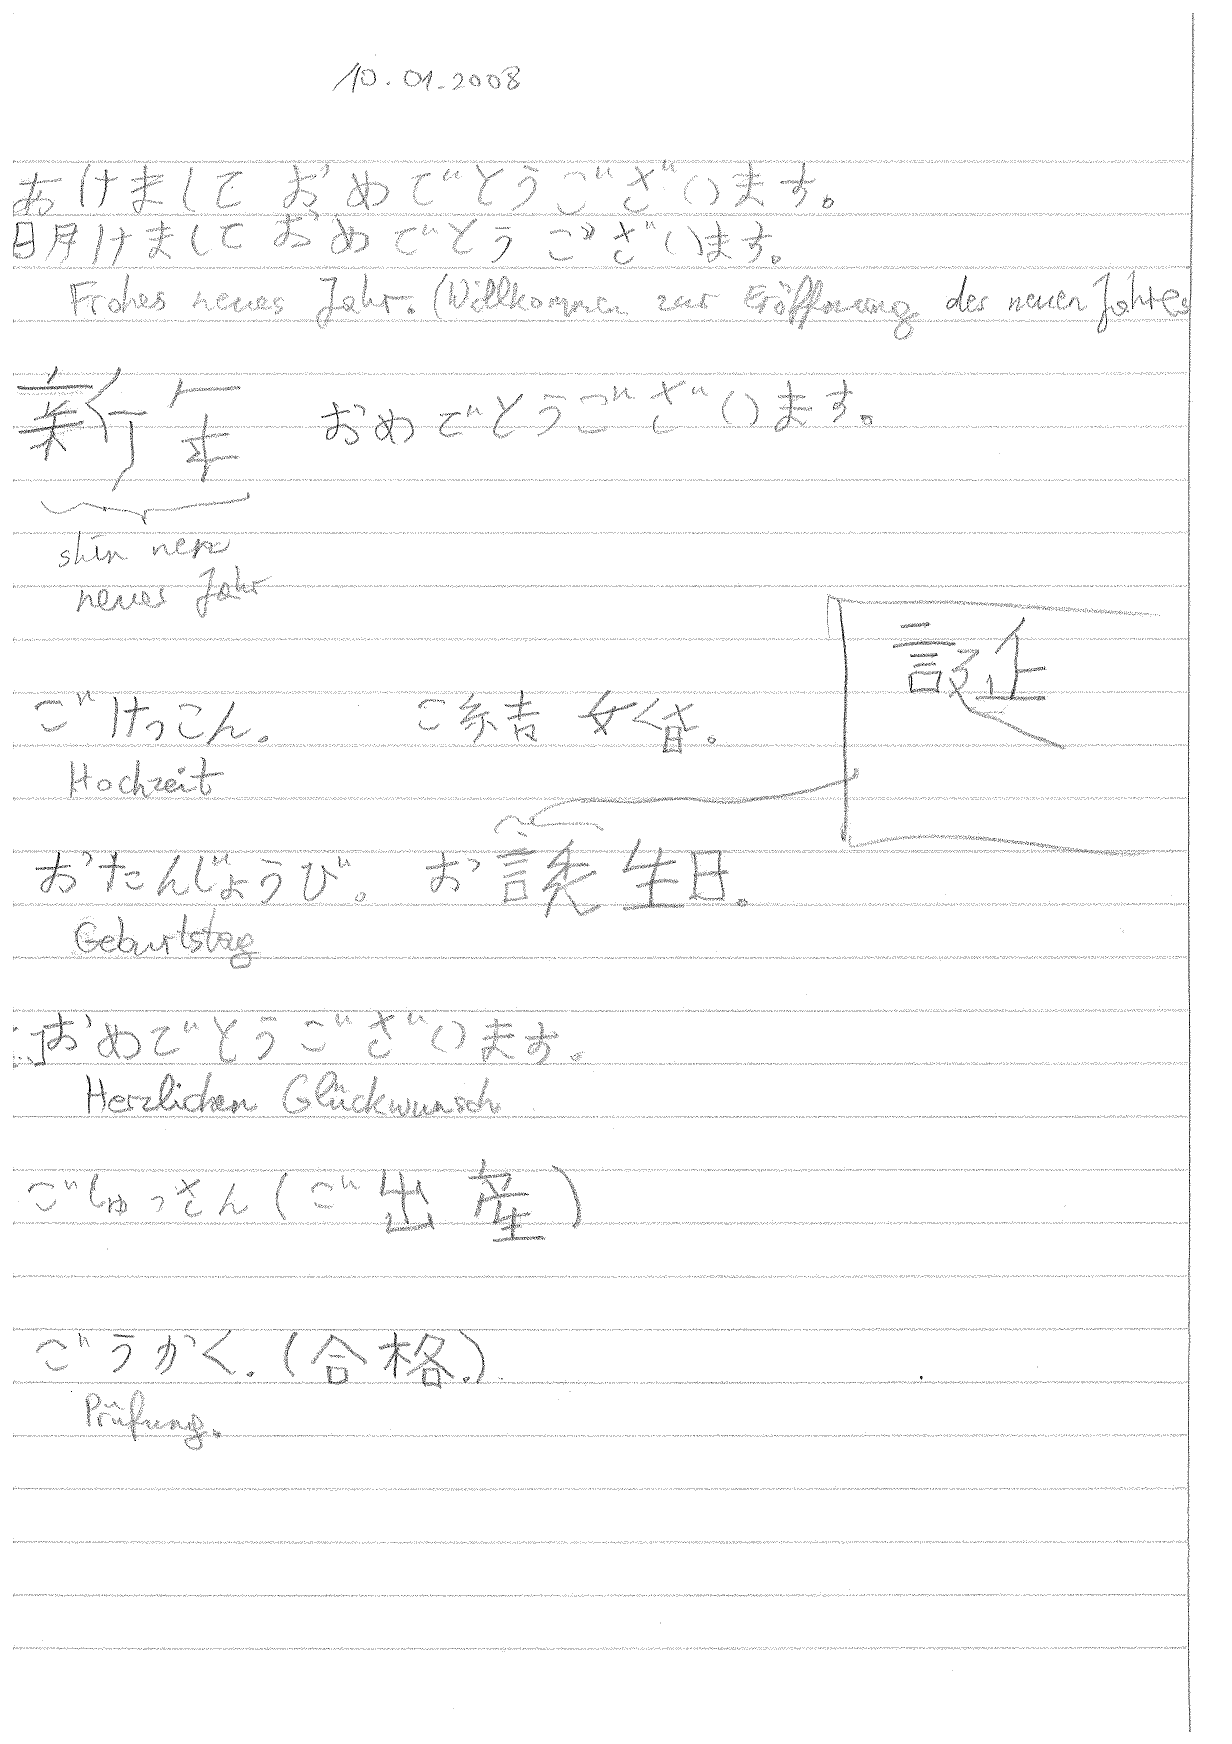 10.01.2008
あけまして おめでとうございます。
明けまして おめでとう ございます。
Frohes neues Jahr. (Willkommen zur Eröffnung des neuen Jahres
新年 おめでとうございます。
shin nen
neues Jahr
誕
ごけっこん。 ご結婚。
Hochzeit
おたんじょうび。 お誕生日。
Geburtstag
...おめでとうございます。
Herzlichen Glückwunsch
ごしゅっさん (ご出産)
ごうかく. (合格.)
Prüfung.